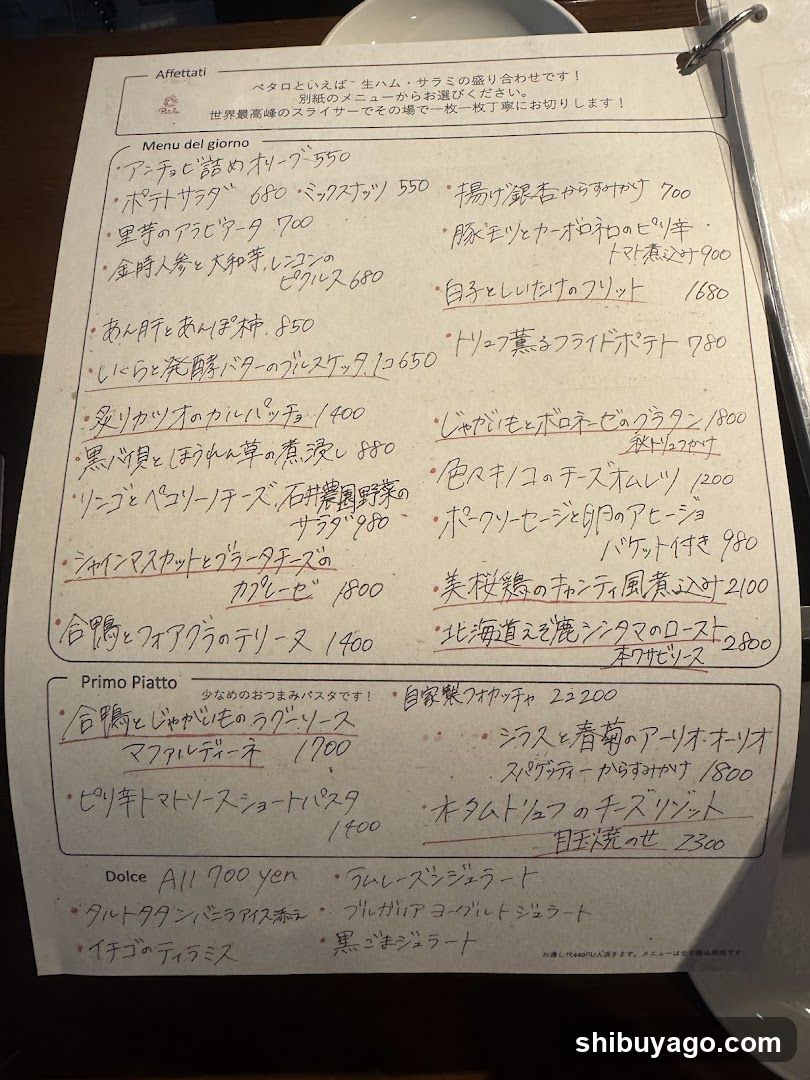 Affettati
ペタロといえば 生ハム・サラミの盛り合わせです！
別紙のメニューからお選びください。
世界最高峰のスライサーでその場で一枚一枚丁寧にお切りします！
Menu del giorno
・アンチョビ詰めオリーブ 550
・ポテトサラダ 680 ・ミックスナッツ 550
・里芋のアラビアータ 700
・金時人参と大和芋、レンコンの
ピクルス 680
・あん肝とあんぽ柿 850
・いくらと発酵バターのブルスケッタ 1コ 650
・炙りカツオのカルパッチョ 1400
・黒バイ貝とほうれん草の煮浸し 880
・リンゴとペコリーノチーズ、石井農園野菜の
サラダ 980
・シャインマスカットとブラータチーズの
カプレーゼ 1800
合鴨とフォアグラのテリーヌ 1400
・揚げ銀杏からすみかけ 700
・豚モツとカーボロネロのピリ辛
トマト煮込み 900
・白子としいたけのフリット 1680
・トリュフ薫るフライドポテト 780
・じゃがいもとボロネーゼのグラタン 1800
秋トリュフかけ
・色々キノコのチーズオムレツ 1200
・ポークソーセージと卵のアヒージョ
バケット付き 980
・美桜鶏のキャンティ風煮込み 2100
・北海道えぞ鹿シンタマのロースト 2800
本ワサビソース
Primo Piatto
少なめのおつまみパスタです！
・自家製フォカッチャ 2コ 200
・合鴨とじゃがいものラグーソース
マファルディーネ 1700
・シラスと春菊のアーリオ・オーリオ
スパゲッティーからすみかけ 1800
・ピリ辛トマトソースショートパスタ
1400
・木タムトリュフのチーズリゾット
目玉焼のせ 2300
Dolce All 700 yen
・タルトタタンバニラアイス添え
・イチゴのティラミス
・ラムレーズンジェラート
・ブルガリアヨーグルトジェラート
・黒ごまジェラート
お通し代440円/人頂きます。メニューは全て税込価格です
shibuyago.com